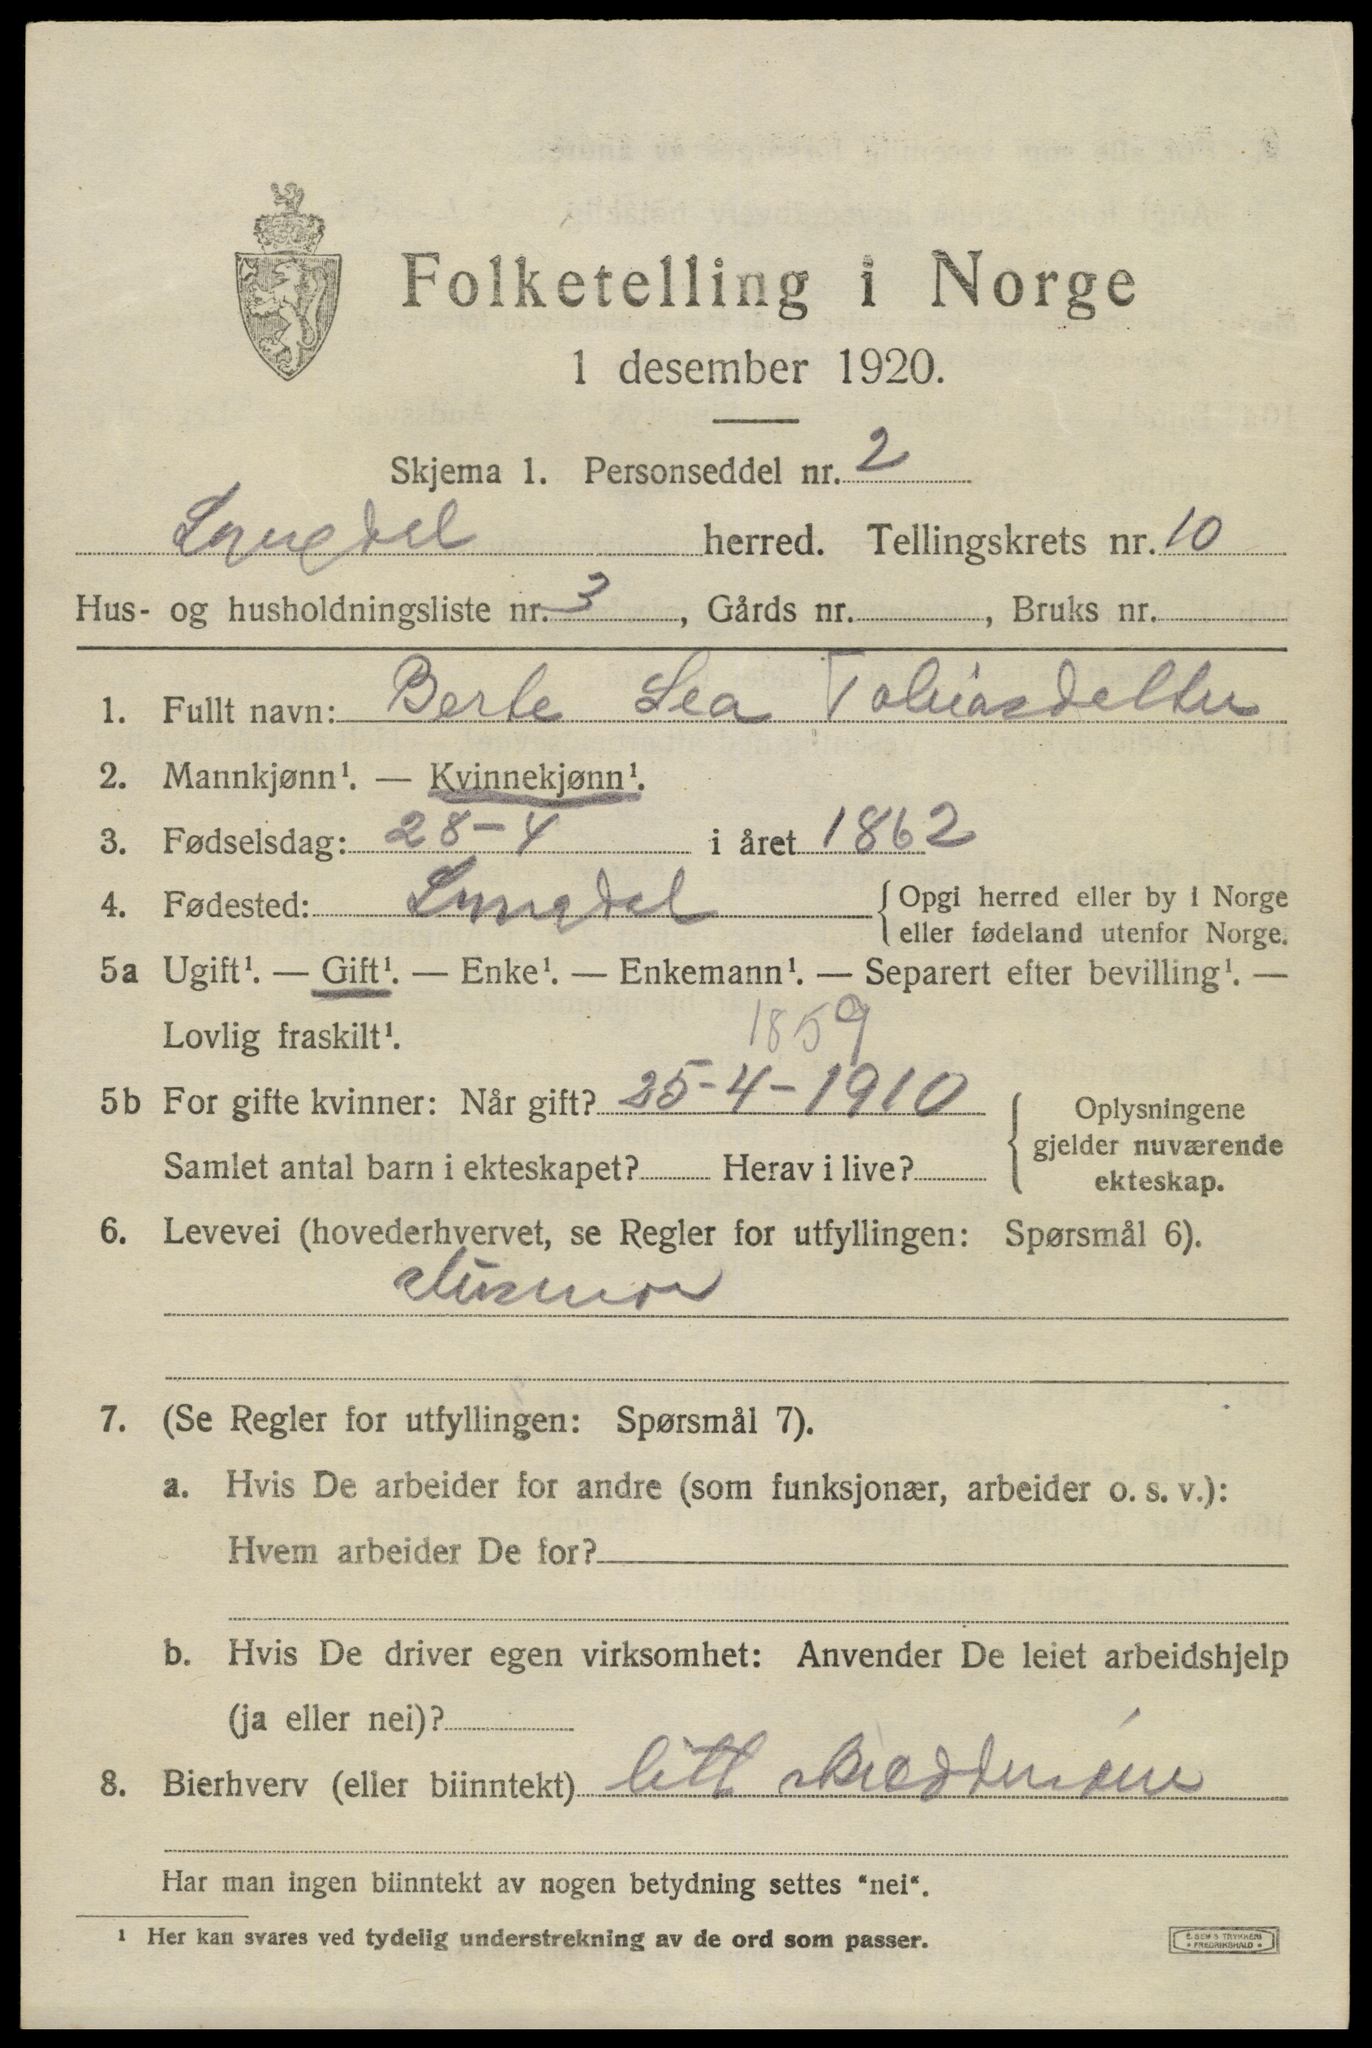 Folketelling i Norge
1 desember 1920.
Skjema 1. Personseddel nr. 2
Lyngdal herred. Tellingskrets nr. 10
Hus- og husholdningsliste nr. 3, Gårds nr. , Bruks nr.
1. Fullt navn: Berte Lea Tobiasdatter
2. Mannkjønn¹. — Kvinnekjønn¹.
3. Fødselsdag: 28-4 i året 1862
4. Fødested: Lyngdal { Opgi herred eller by i Norge
eller fødeland utenfor Norge.
5a Ugift¹. — Gift¹. — Enke¹. — Enkemann¹. — Separert efter bevilling¹. —
Lovlig fraskilt¹.
1859
5b For gifte kvinner: Når gift? 25-4-1910
Samlet antal barn i ekteskapet? Herav i live?
{ Oplysningene
gjelder nuværende
ekteskap.
6. Levevei (hovederhvervet, se Regler for utfyllingen: Spørsmål 6).
Husmor
7. (Se Regler for utfyllingen: Spørsmål 7).
a. Hvis De arbeider for andre (som funksjonær, arbeider o. s. v.):
Hvem arbeider De for?
b. Hvis De driver egen virksomhet: Anvender De leiet arbeidshjelp
(ja eller nei)?
8. Bierhverv (eller biinntekt) litt
Har man ingen biinntekt av nogen betydning settes "nei".
¹ Her kan svares ved tydelig understrekning av de ord som passer.
E. SEM'S TRYKKERI
* FREDRIKSHALD *